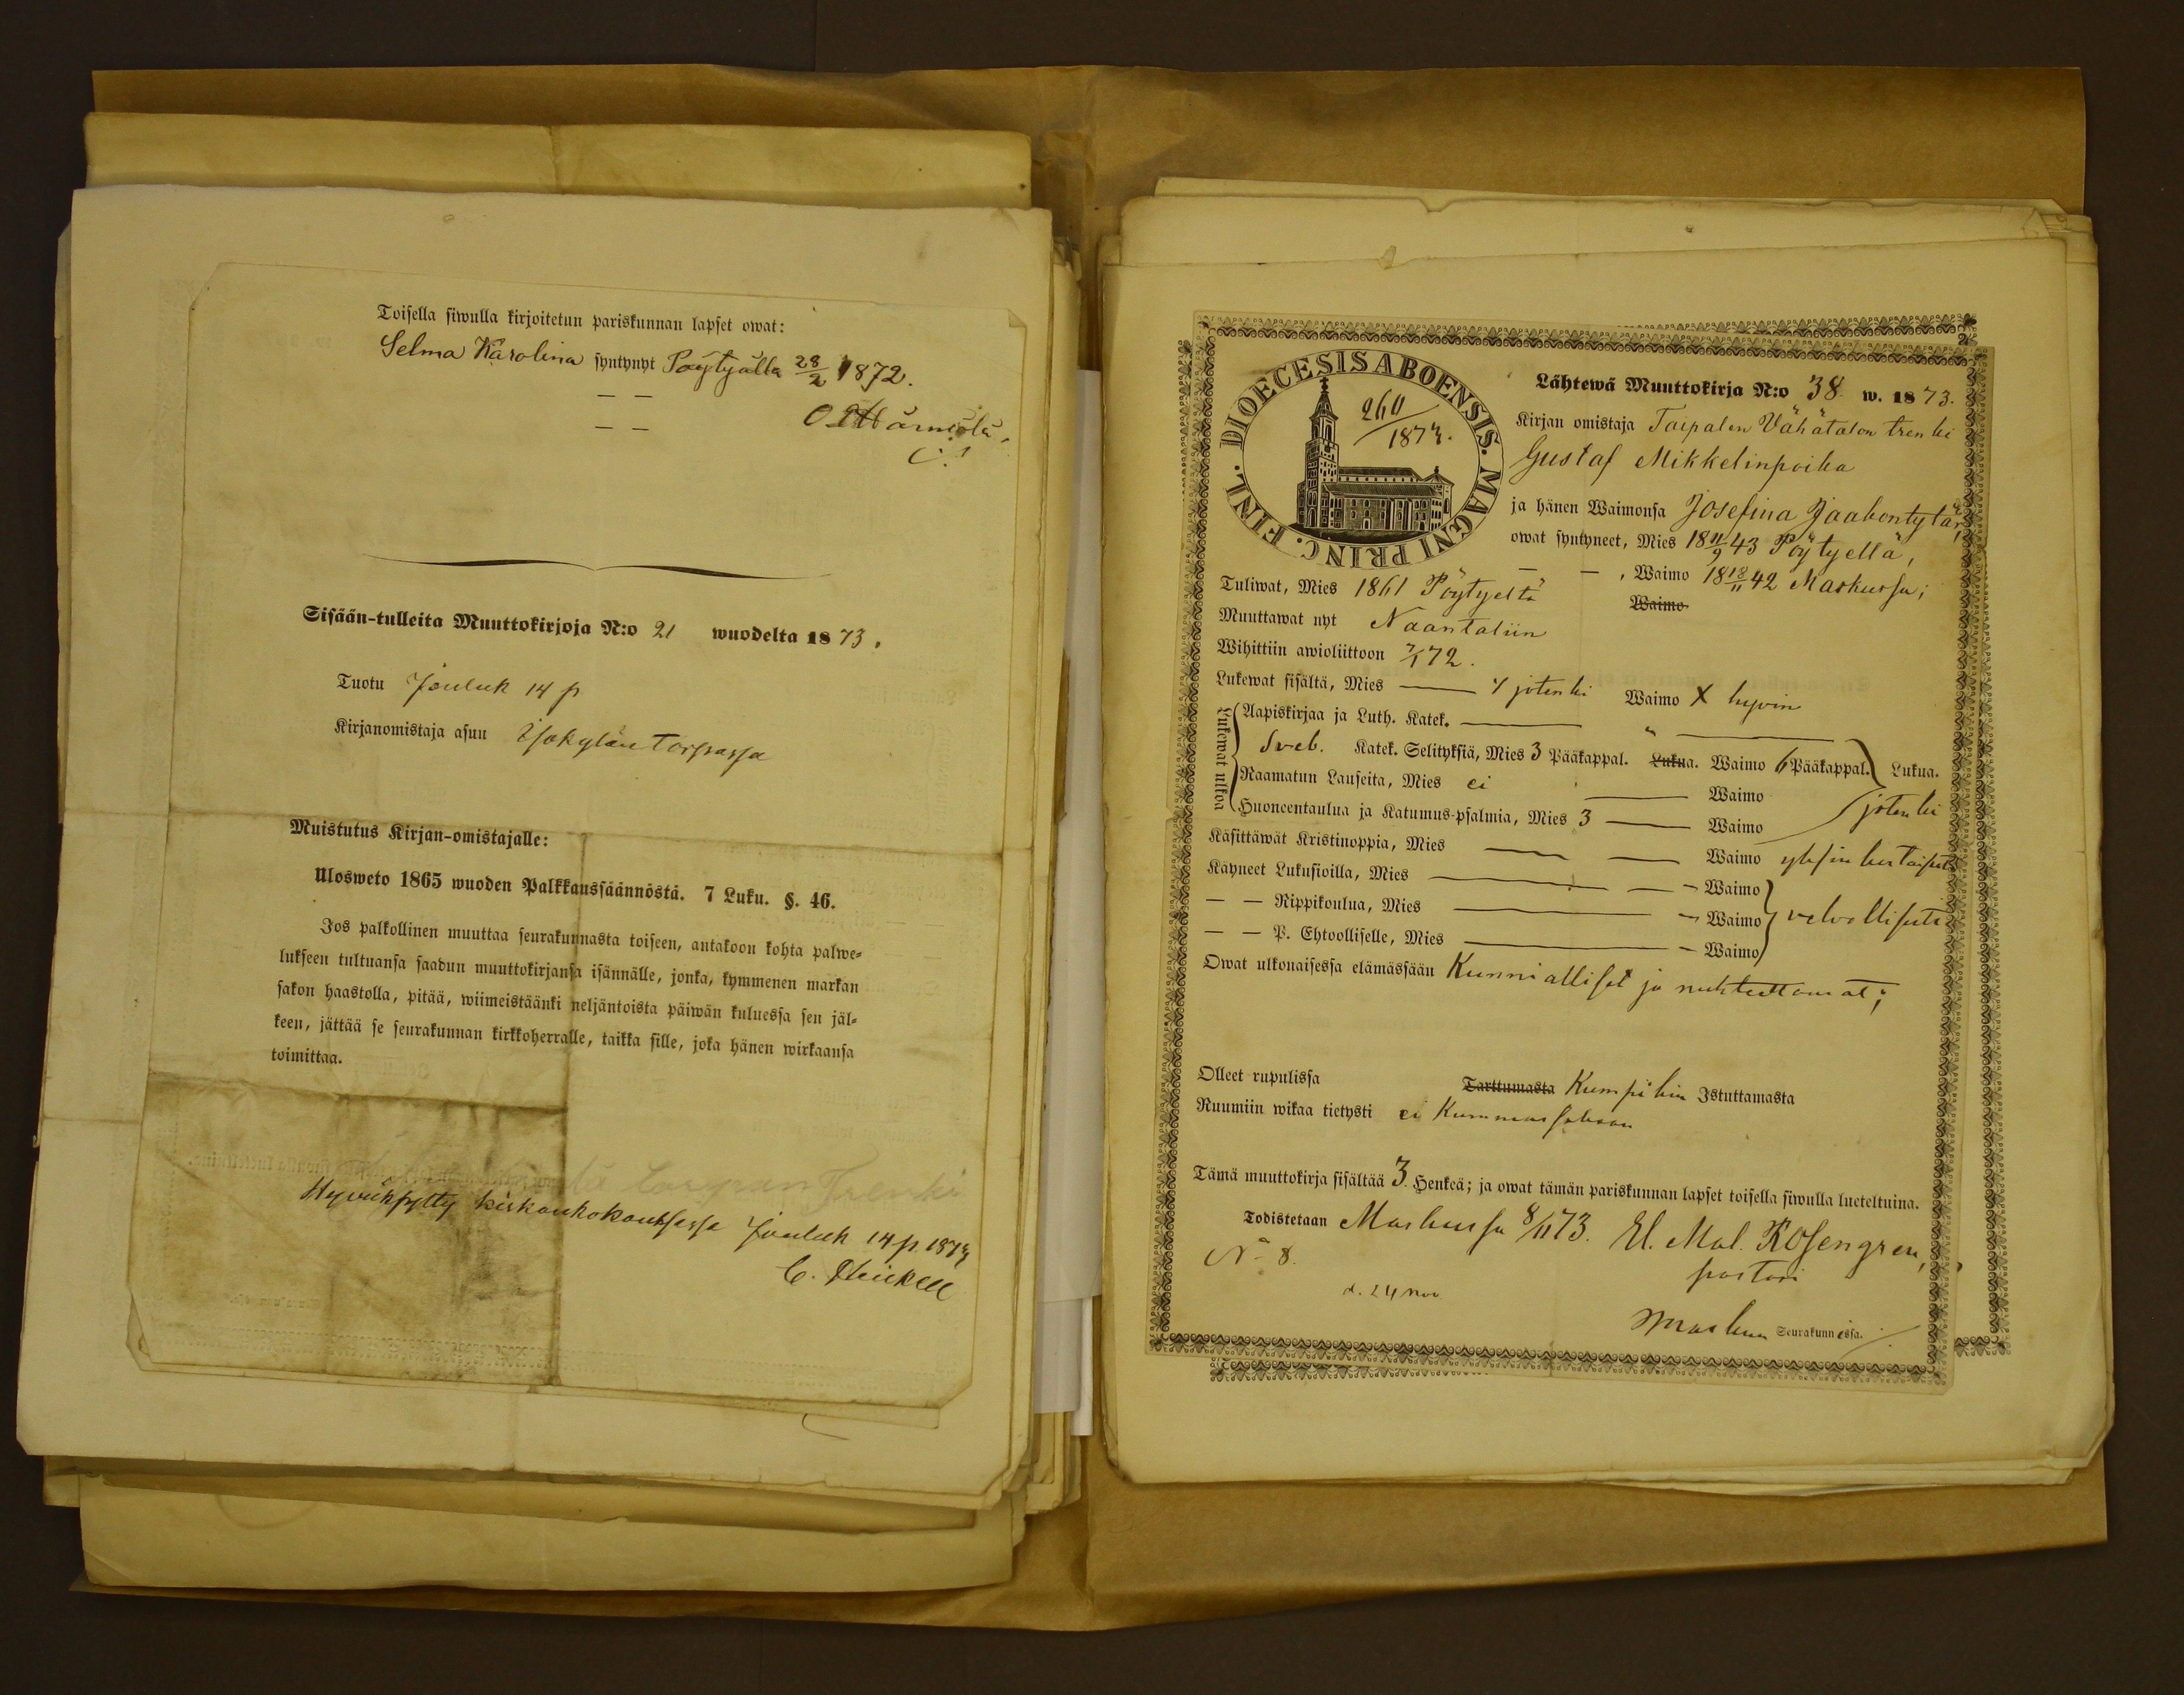 Toisella siwulla kirjoitetun pariskunnan lapset owat:
Selma Karolina syntynyt Pöytyällä 28/2 1872.
— —
— —
Sisään-tulleita Muuttokirjoja N:o 21 wuodelta 1873.
Tuotu Jouluk 14 p
Kirjanomistaja asuu Isokylän torpassa
Muistutus Kirjan-omistajalle:
Ulosweto 1865 wuoden Palkkaussäännöstä. 7 Luku. §. 46.
Jos palkollinen muuttaa seurakunnasta toiseen, antakoon kohta palwe-
lukseen tultuansa saadun muuttokirjansa isännälle, jonka, kymmenen markan
sakon haastolla, pitää, wiimeistäänki neljäntoista päiwän kuluessa sen jäl-
keen, jättää se seurakunnan kirkkoherralle, taikka sille, joka hänen wirkaansa
toimittaa.
torpan Trenki
Hyväksytty kirkonkokouksessa Jouluk 14 p. 1873
C. Heickell
DIOECESIS ABOENSIS. MAGNI PRINC. FINL.
260/1873.
Lähtewä Muuttokirja N:o 38. w. 1873.
Kirjan omistaja Taipalen Vähätalon trenki
Gustaf Mikkelinpoika
ja hänen Waimonsa Josefina Jaakontytär,
owat syntyneet, Mies 18 11/9 43 Pöytyellä,
— — , Waimo 18 18/11 42 Maskussa;
Tuliwat, Mies 1861 Pöytyeltä Waimo
Muuttawat nyt Naantaliin
Wihittiin awioliittoon 7/1 72.
Lukewat sisältä, Mies — jotenki Waimo X hyvin
Lukewat ulkoa
Aapiskirjaa ja Luth. Katek. — " —
Sveb. Katek. Selityksiä, Mies 3 Pääkappal. Lukua. Waimo 6 Pääkappal. Lukua.
Raamatun Lauseita, Mies ei — Waimo
Huoneentaulua ja Katumus-psalmia, Mies 3 — Waimo jotenki
Käsittäwät Kristinoppia, Mies — — Waimo yksinkertaisesti
Käyneet Lukusioilla, Mies — — Waimo
— — Rippikoulua, Mies — — Waimo velvollisesti
— — P. Ehtoolliselle, Mies — — Waimo
Owat ulkonaisessa elämässään Kunnialliset ja nuhteettomat;
Olleet rupulissa Tarttumasta Kumpikin Istuttamasta
Ruumiin wikaa tietysti ei Kummassakaan
Tämä muuttokirja sisältää 3. Henkeä; ja owat tämän pariskunnan lapset toisella siwulla lueteltuina.
Todistetaan Maskussa 8/11 73. El. Mal. Rosengren,
pastori
N:o 8.
d. 24 nov
Maskun Seurakunnassa.